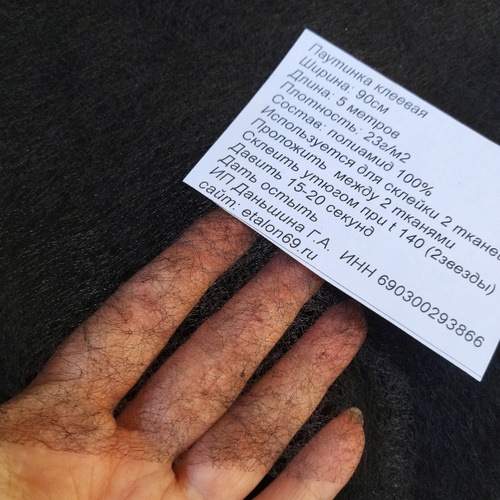 Паутинка клеевая
Ширина: 90см
Длина: 5 метров
Плотность: 23г/м2
Состав: полиамид 100%
Используется для склейки 2 тканей
Проложить между 2 тканями
Склеить утюгом при t 140 (2звезды)
Давить 15-20 секунд
Дать остыть
ИП Даньшина Г.А. ИНН 690300293866
сайт: etalon69.ru